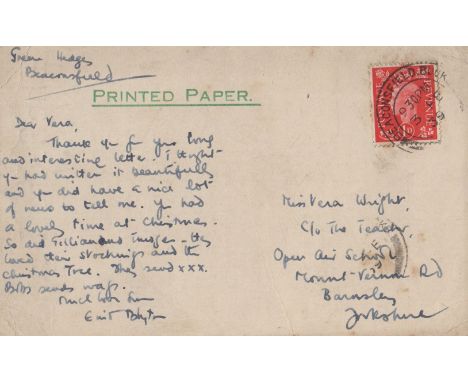 Green Hedges
Beaconsfield
PRINTED PAPER.
Dear Vera,
Thank you for your long
and interesting letter. I thought
you had written it beautifully
and you did have a nice lot
of news to tell me. You had
a lovely time at Christmas.
So did Gillian and Imogen - they
loved their stockings and the
Christmas Tree. They send xxx.
Bobs sends wags.
Much love from
Enid Blyton
BEACONSFIELD, BUCKS
REVENUE
Miss Vera Wright,
C/o The Teacher,
Open Air School
Mount Vernon Rd
Barnsley
Yorkshire